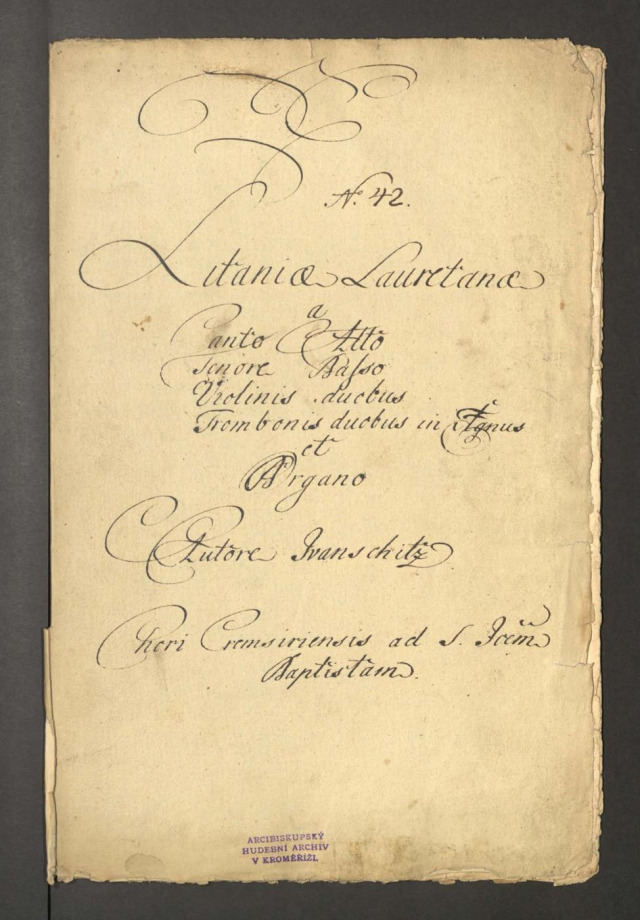 No. 42.
Litaniæ Lauretanæ
a
Canto Alto
Tenore Basso
Violinis duobus
Trombonis duobus in Agnus
et
Organo
Autore Ivanschitz
Chori Cremsiriensis ad S. Joem̃
Baptistam.
ARCIBISKUPSKÝ
HUDEBNÍ ARCHIV
V KROMĚŘÍŽI.